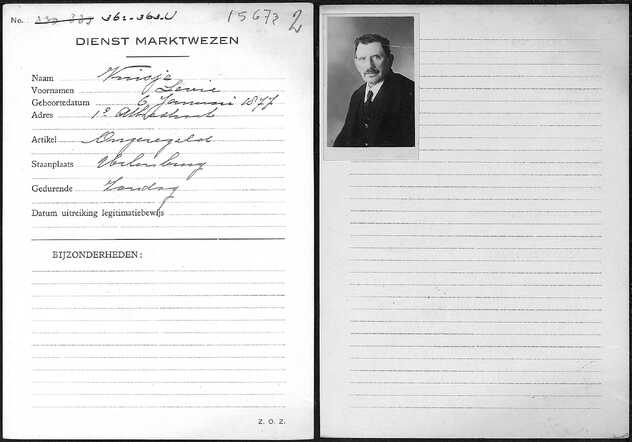 No. 362-363.U 1567? 2
DIENST MARKTWEZEN
Naam Kruisje
Voornamen Levie
Geboortedatum 6 Januari 1877
Adres 1e
Artikel Ongeregeld
Staanplaats Uilenburg
Gedurende Zondag
Datum uitreiking legitimatiebewijs
BIJZONDERHEDEN:
Z. O. Z.